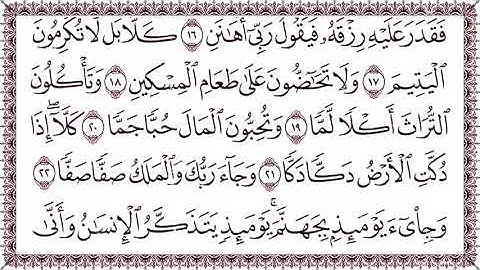 فَقَدَرَ عَلَيْهِ رِزْقَهُۥ فَيَقُولُ رَبِّىٓ أَهَـٰنَنِ ١٦ كَلَّا بَل لَّا تُكْرِمُونَ
ٱلْيَتِيمَ ١٧ وَلَا تَحَـٰٓضُّونَ عَلَىٰ طَعَامِ ٱلْمِسْكِينِ ١٨ وَتَأْكُلُونَ
ٱلتُّرَاثَ أَكْلًا لَّمًّا ١٩ وَتُحِبُّونَ ٱلْمَالَ حُبًّا جَمًّا ٢٠ كَلَّآ ۖ إِذَا
دُكَّتِ ٱلْأَرْضُ دَكًّا دَكًّا ٢١ وَجَآءَ رَبُّكَ وَٱلْمَلَكُ صَفًّا صَفًّا ٢٢
وَجِا۟ىٓءَ يَوْمَئِذٍۭ بِجَهَنَّمَ ۚ يَوْمَئِذٍ يَتَذَكَّرُ ٱلْإِنسَـٰنُ وَأَنَّىٰ